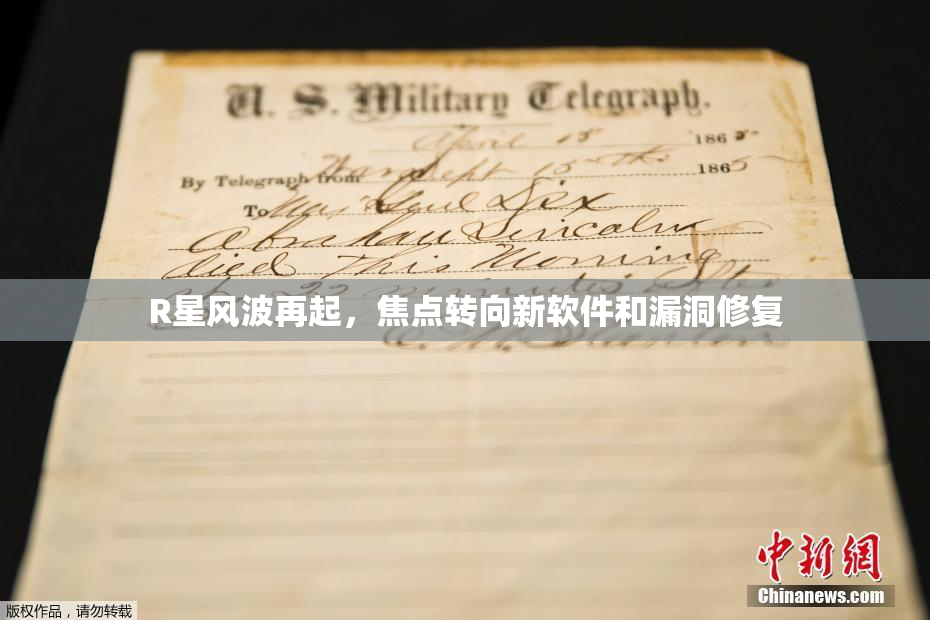 U. S. Military Telegraph.
April 15 1865
By Telegraph from War Dept 15th 1865
To Maj Genl Dix
Abraham Lincoln
died This Morning
at 22 minutes after
R星风波再起，焦点转向新软件和漏洞修复
E. M. Stanton
中新網
Chinanews.com
版权作品，请勿转载